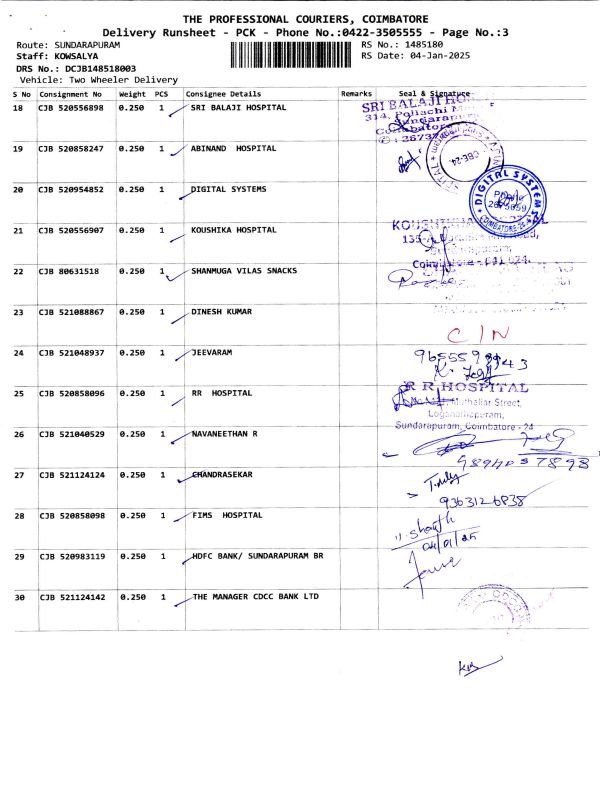 THE PROFESSIONAL COURIERS, COIMBATORE
Delivery Runsheet - PCK - Phone No.:0422-3505555 - Page No.:3
Route: SUNDARAPURAM RS No.: 1485180
Staff: KOWSALYA RS Date: 04-Jan-2025
DRS No.: DCJB148518003
Vehicle: Two Wheeler Delivery
S No Consignment No Weight PCS Consignee Details Remarks Seal & Signature
18 CJB 520556898 0.250 1 SRI BALAJI HOSPITAL
SRI BALAJI
314, Pollachi
Sundarapur
Coimbatore
19 CJB 520858247 0.250 1 ABINAND HOSPITAL
CBE-24.
20 CJB 520954852 0.250 1 DIGITAL SYSTEMS
DIGITAL SYSTEMS
2675659
COIMBATORE-24
21 CJB 520556907 0.250 1 KOUSHIKA HOSPITAL
22 CJB 80631518 0.250 1 SHANMUGA VILAS SNACKS
23 CJB 521088867 0.250 1 DINESH KUMAR
C/N
24 CJB 521048937 0.250 1 JEEVARAM
25 CJB 520858096 0.250 1 RR HOSPITAL
R R HOSPITAL
Muthaliar Street,
Loganathapuram,
Sundarapuram, Coimbatore - 24
26 CJB 521040529 0.250 1 NAVANEETHAN R
9894037898
27 CJB 521124124 0.250 1 CHANDRASEKAR
9363126838
28 CJB 520858098 0.250 1 FIMS HOSPITAL
04/01/25
29 CJB 520983119 0.250 1 HDFC BANK/ SUNDARAPURAM BR
30 CJB 521124142 0.250 1 THE MANAGER CDCC BANK LTD